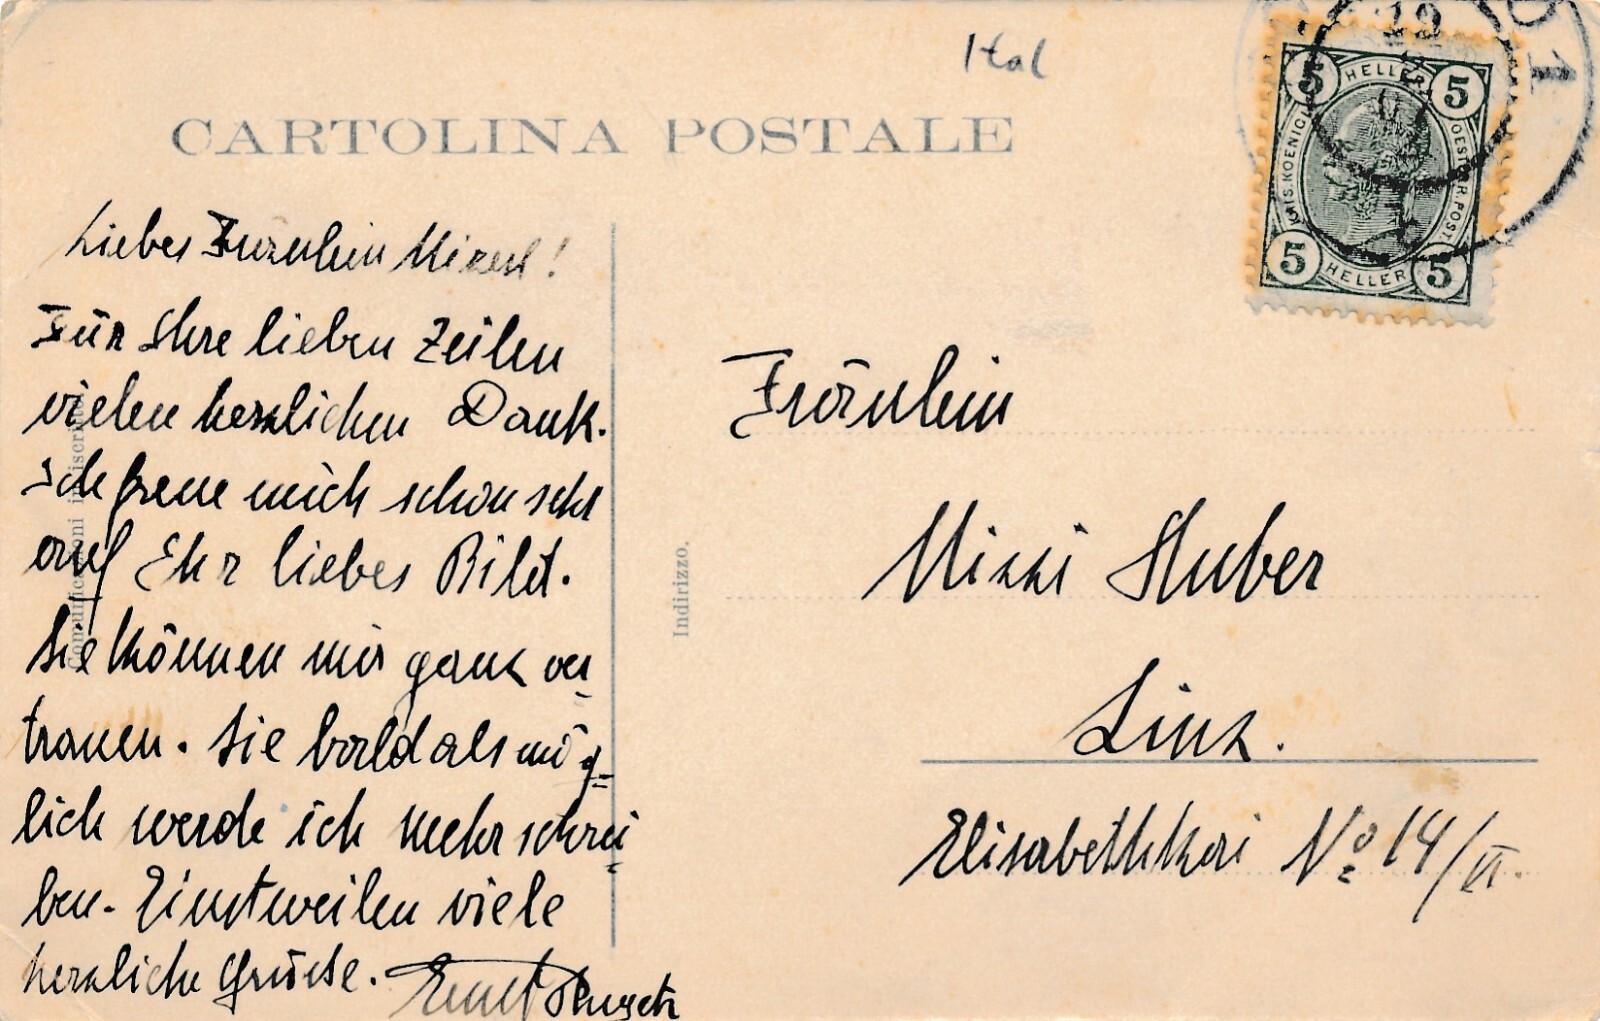 Ital
CARTOLINA POSTALE
5 HELLER 5
KAIS. KOENIGL.
OESTERR. POST.
5 HELLER 5
12
Liebes Fräulein
Für Ihre lieben Zeilen
vielen herzlichen Dank.
Ich freue mich schon sehr
auf Ihr liebes Bild.
Sie können mir ganz ver
trauen. Sie bald als mög=
lich werde ich mehr schrei
ben. Einstweilen viele
herzliche Grüsse. Ernst
Comunicazioni
Indirizzo.
Fräulein
Mizzi Huber
Linz.
Elisabethkai No 14/VI.